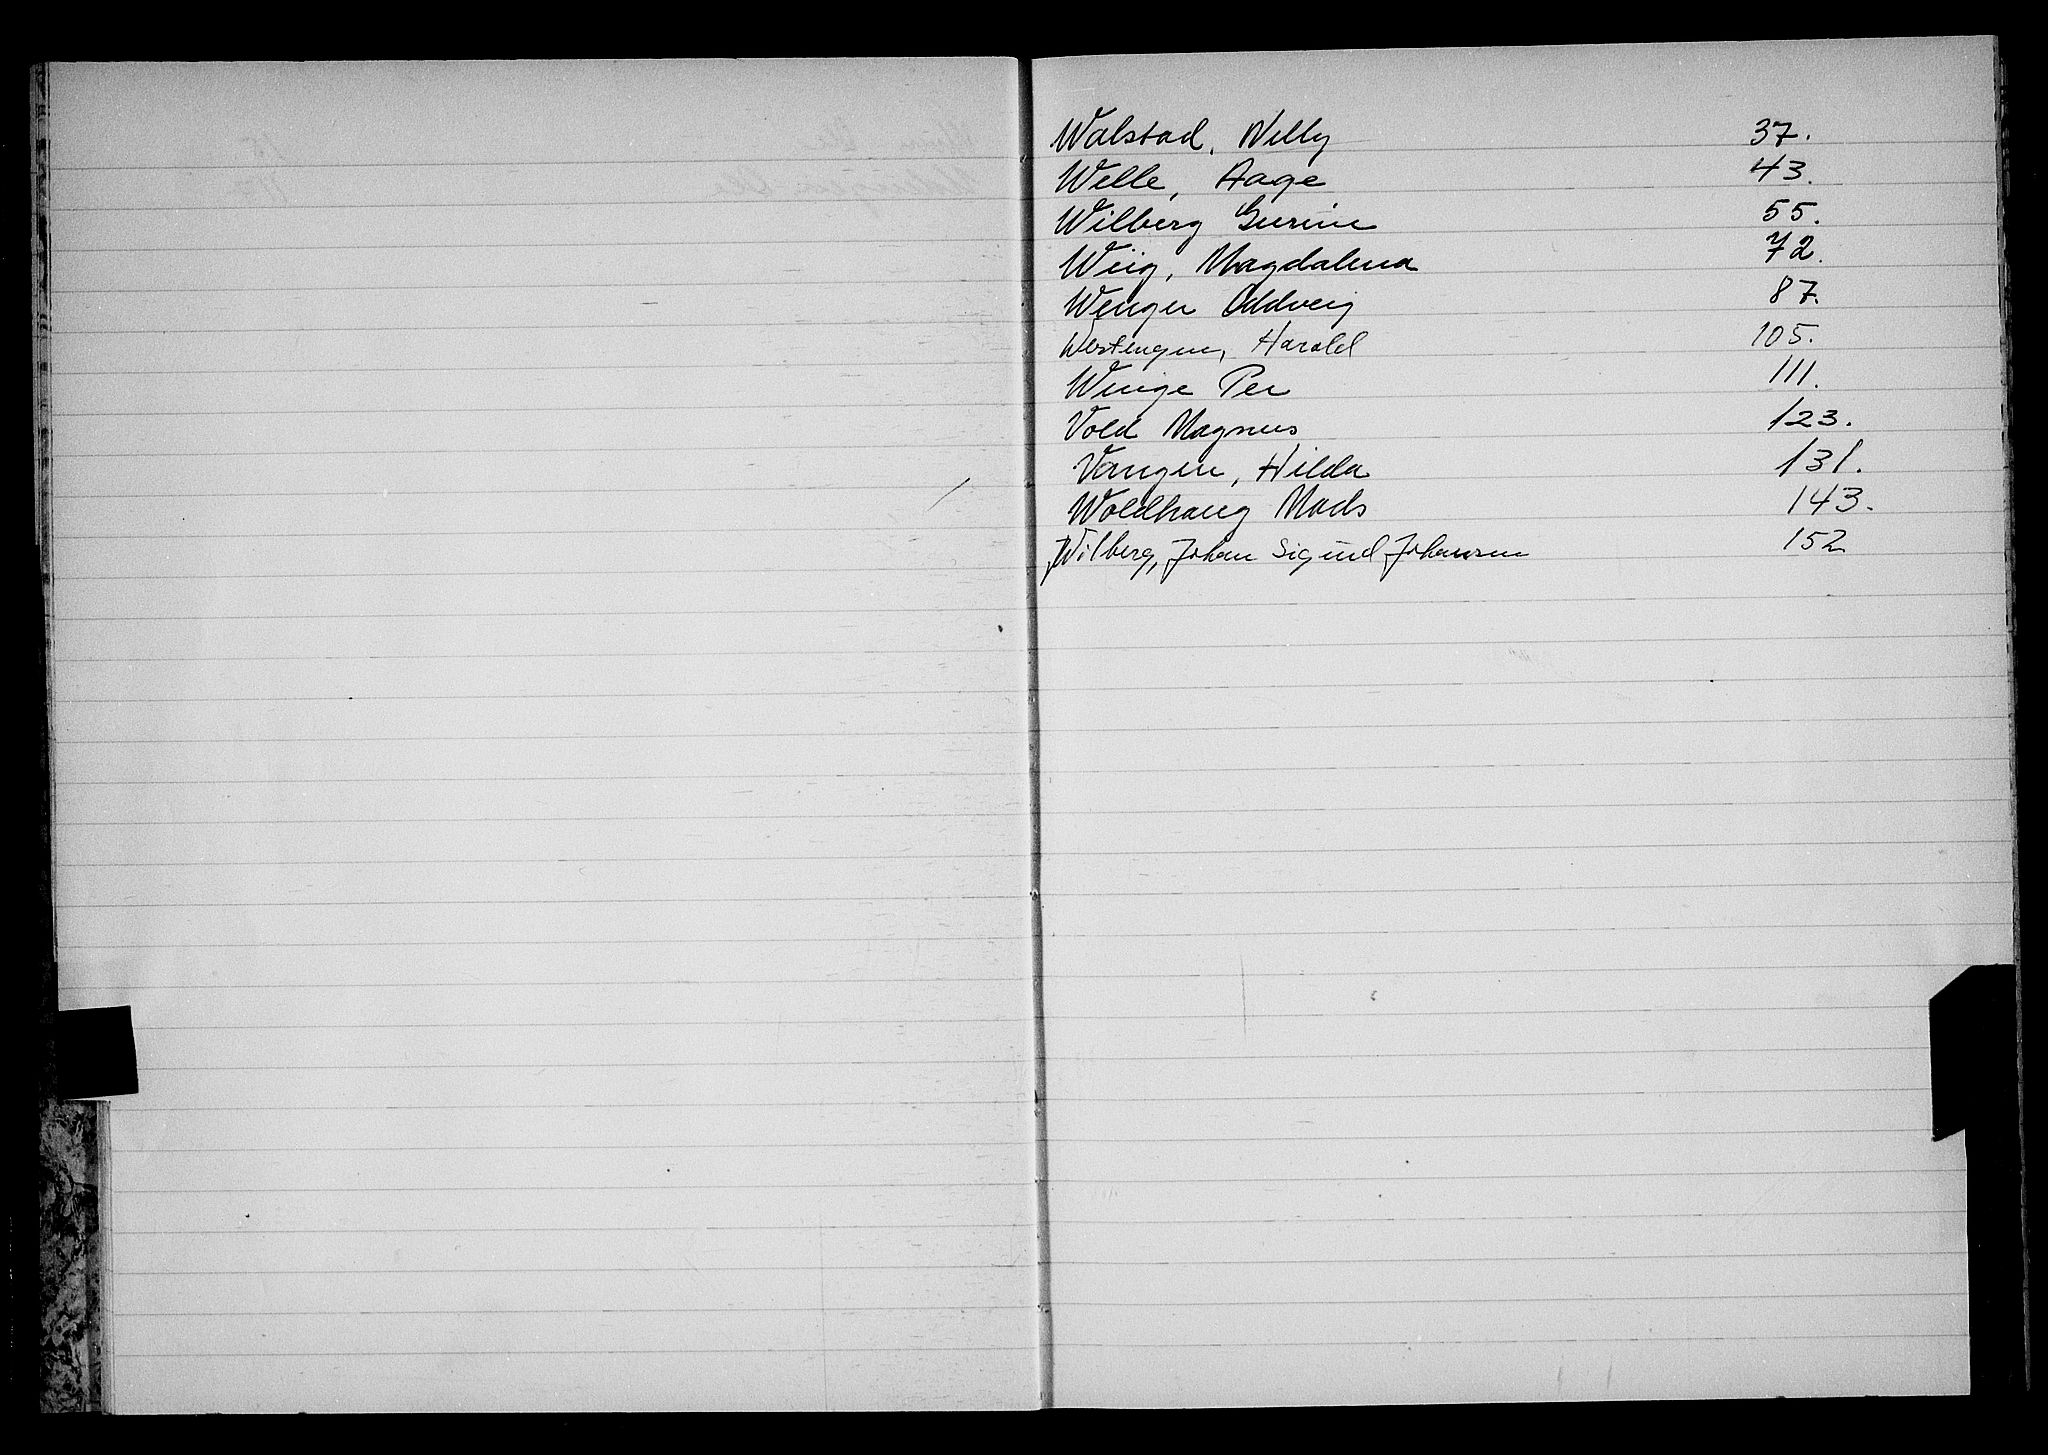 Walstad, Willy 37.
Welle, Aage 43.
Wilberg Gurine 55.
Wiig, Magdalena 72.
Wenger Oddveig 87.
Westengen, Harald 105.
Winge Per 111.
Vold Magnus 123.
Vangen, Hilda 131.
Woldhaug Mads 143.
Wilberg, Johan Sigurd Johansen 152